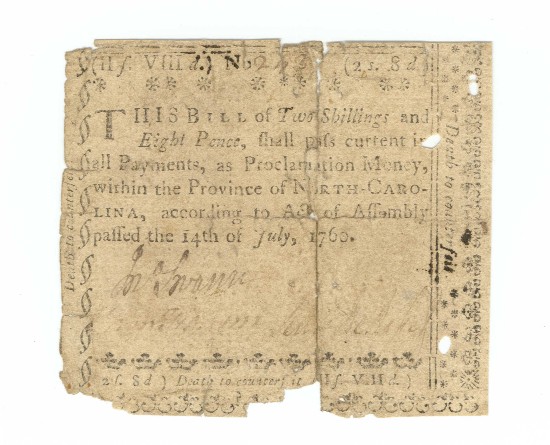 (II ſ. VIII d.) No (2 s. 8 d
THIS BILL of Two Shillings and
Eight Pence, ſhall paſs current in
all Payments, as Proclamation Money,
within the Province of NORTH-CARO-
LINA, according to Act of Aſſembly
paſſed the 14th of July, 1760.
Jno Swann
2 ſ. 8 d ) Death to counterf it II ſ. VIII d. )
Death to counterf
Death to counterfeit